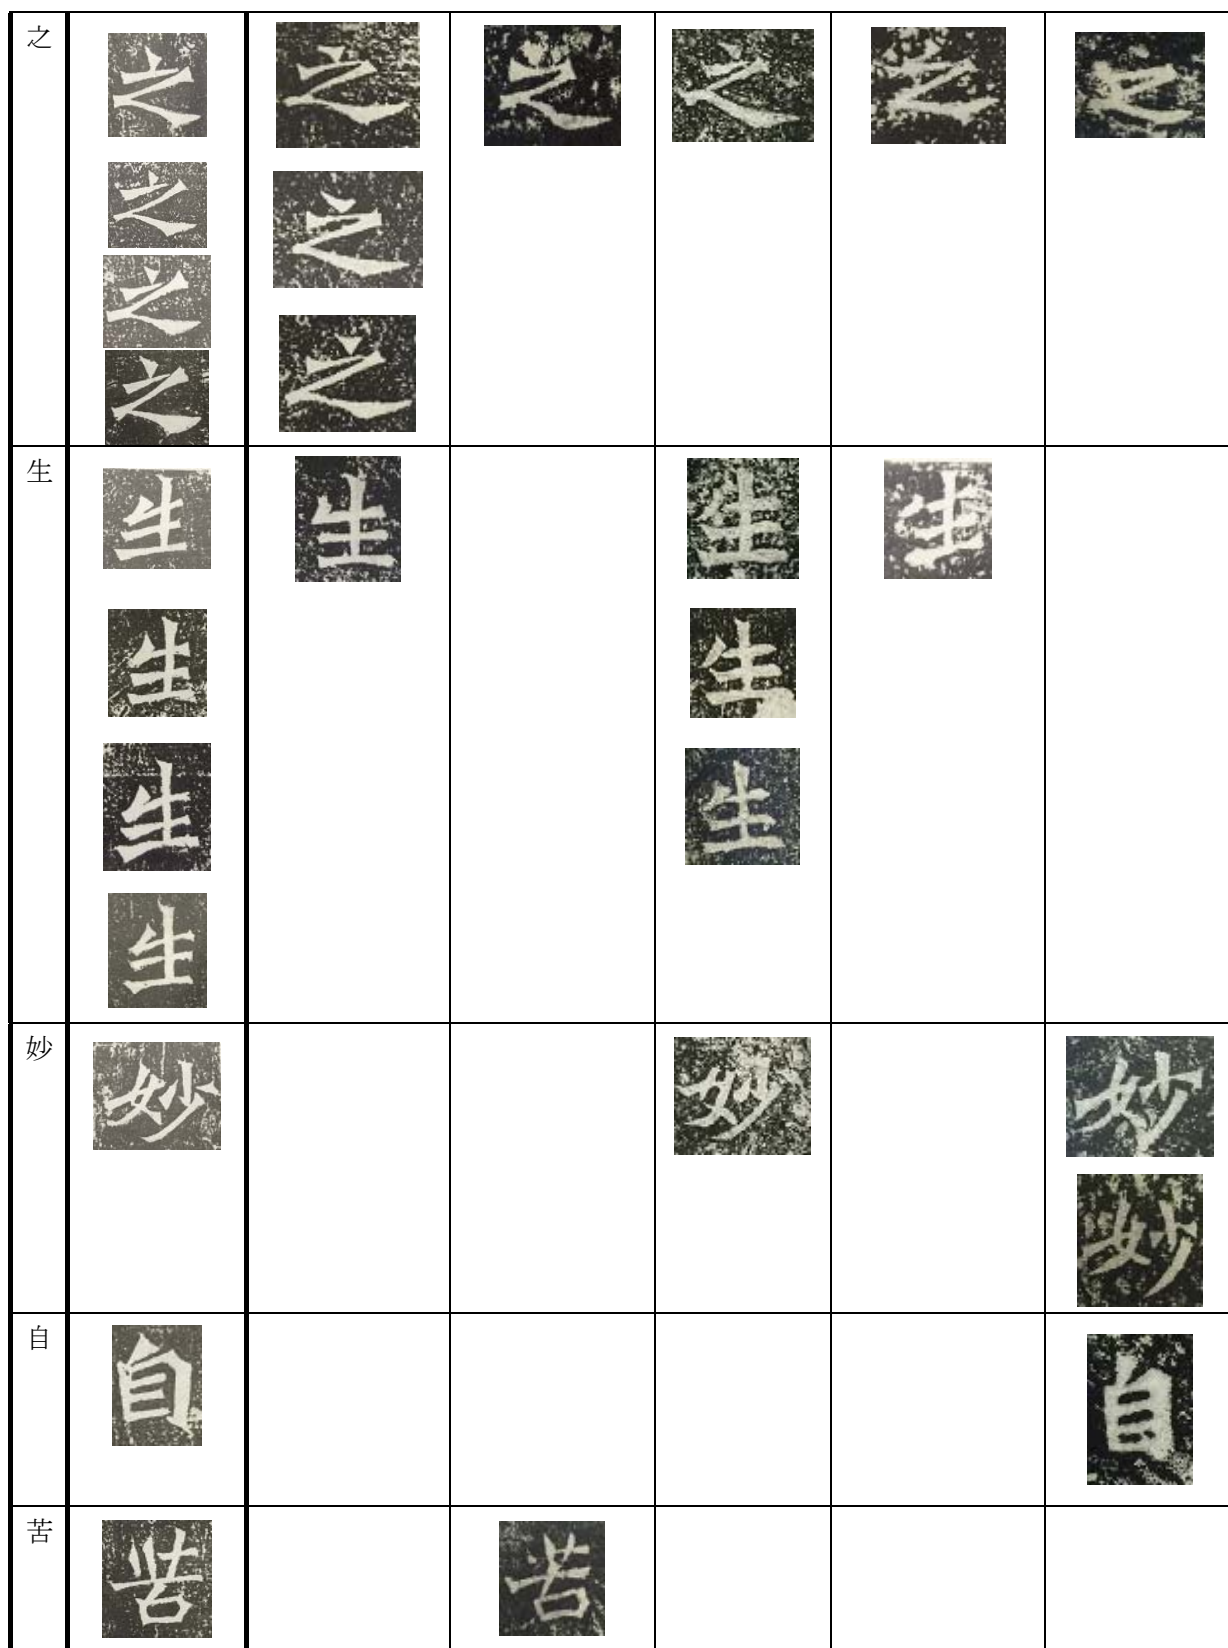 之 之 之 之 之 之 之
之 之
之 之
之
生 生 生 生 生
生 生
生 生
生
妙 妙 妙 妙
妙
自 自 自
苦 苦 苦